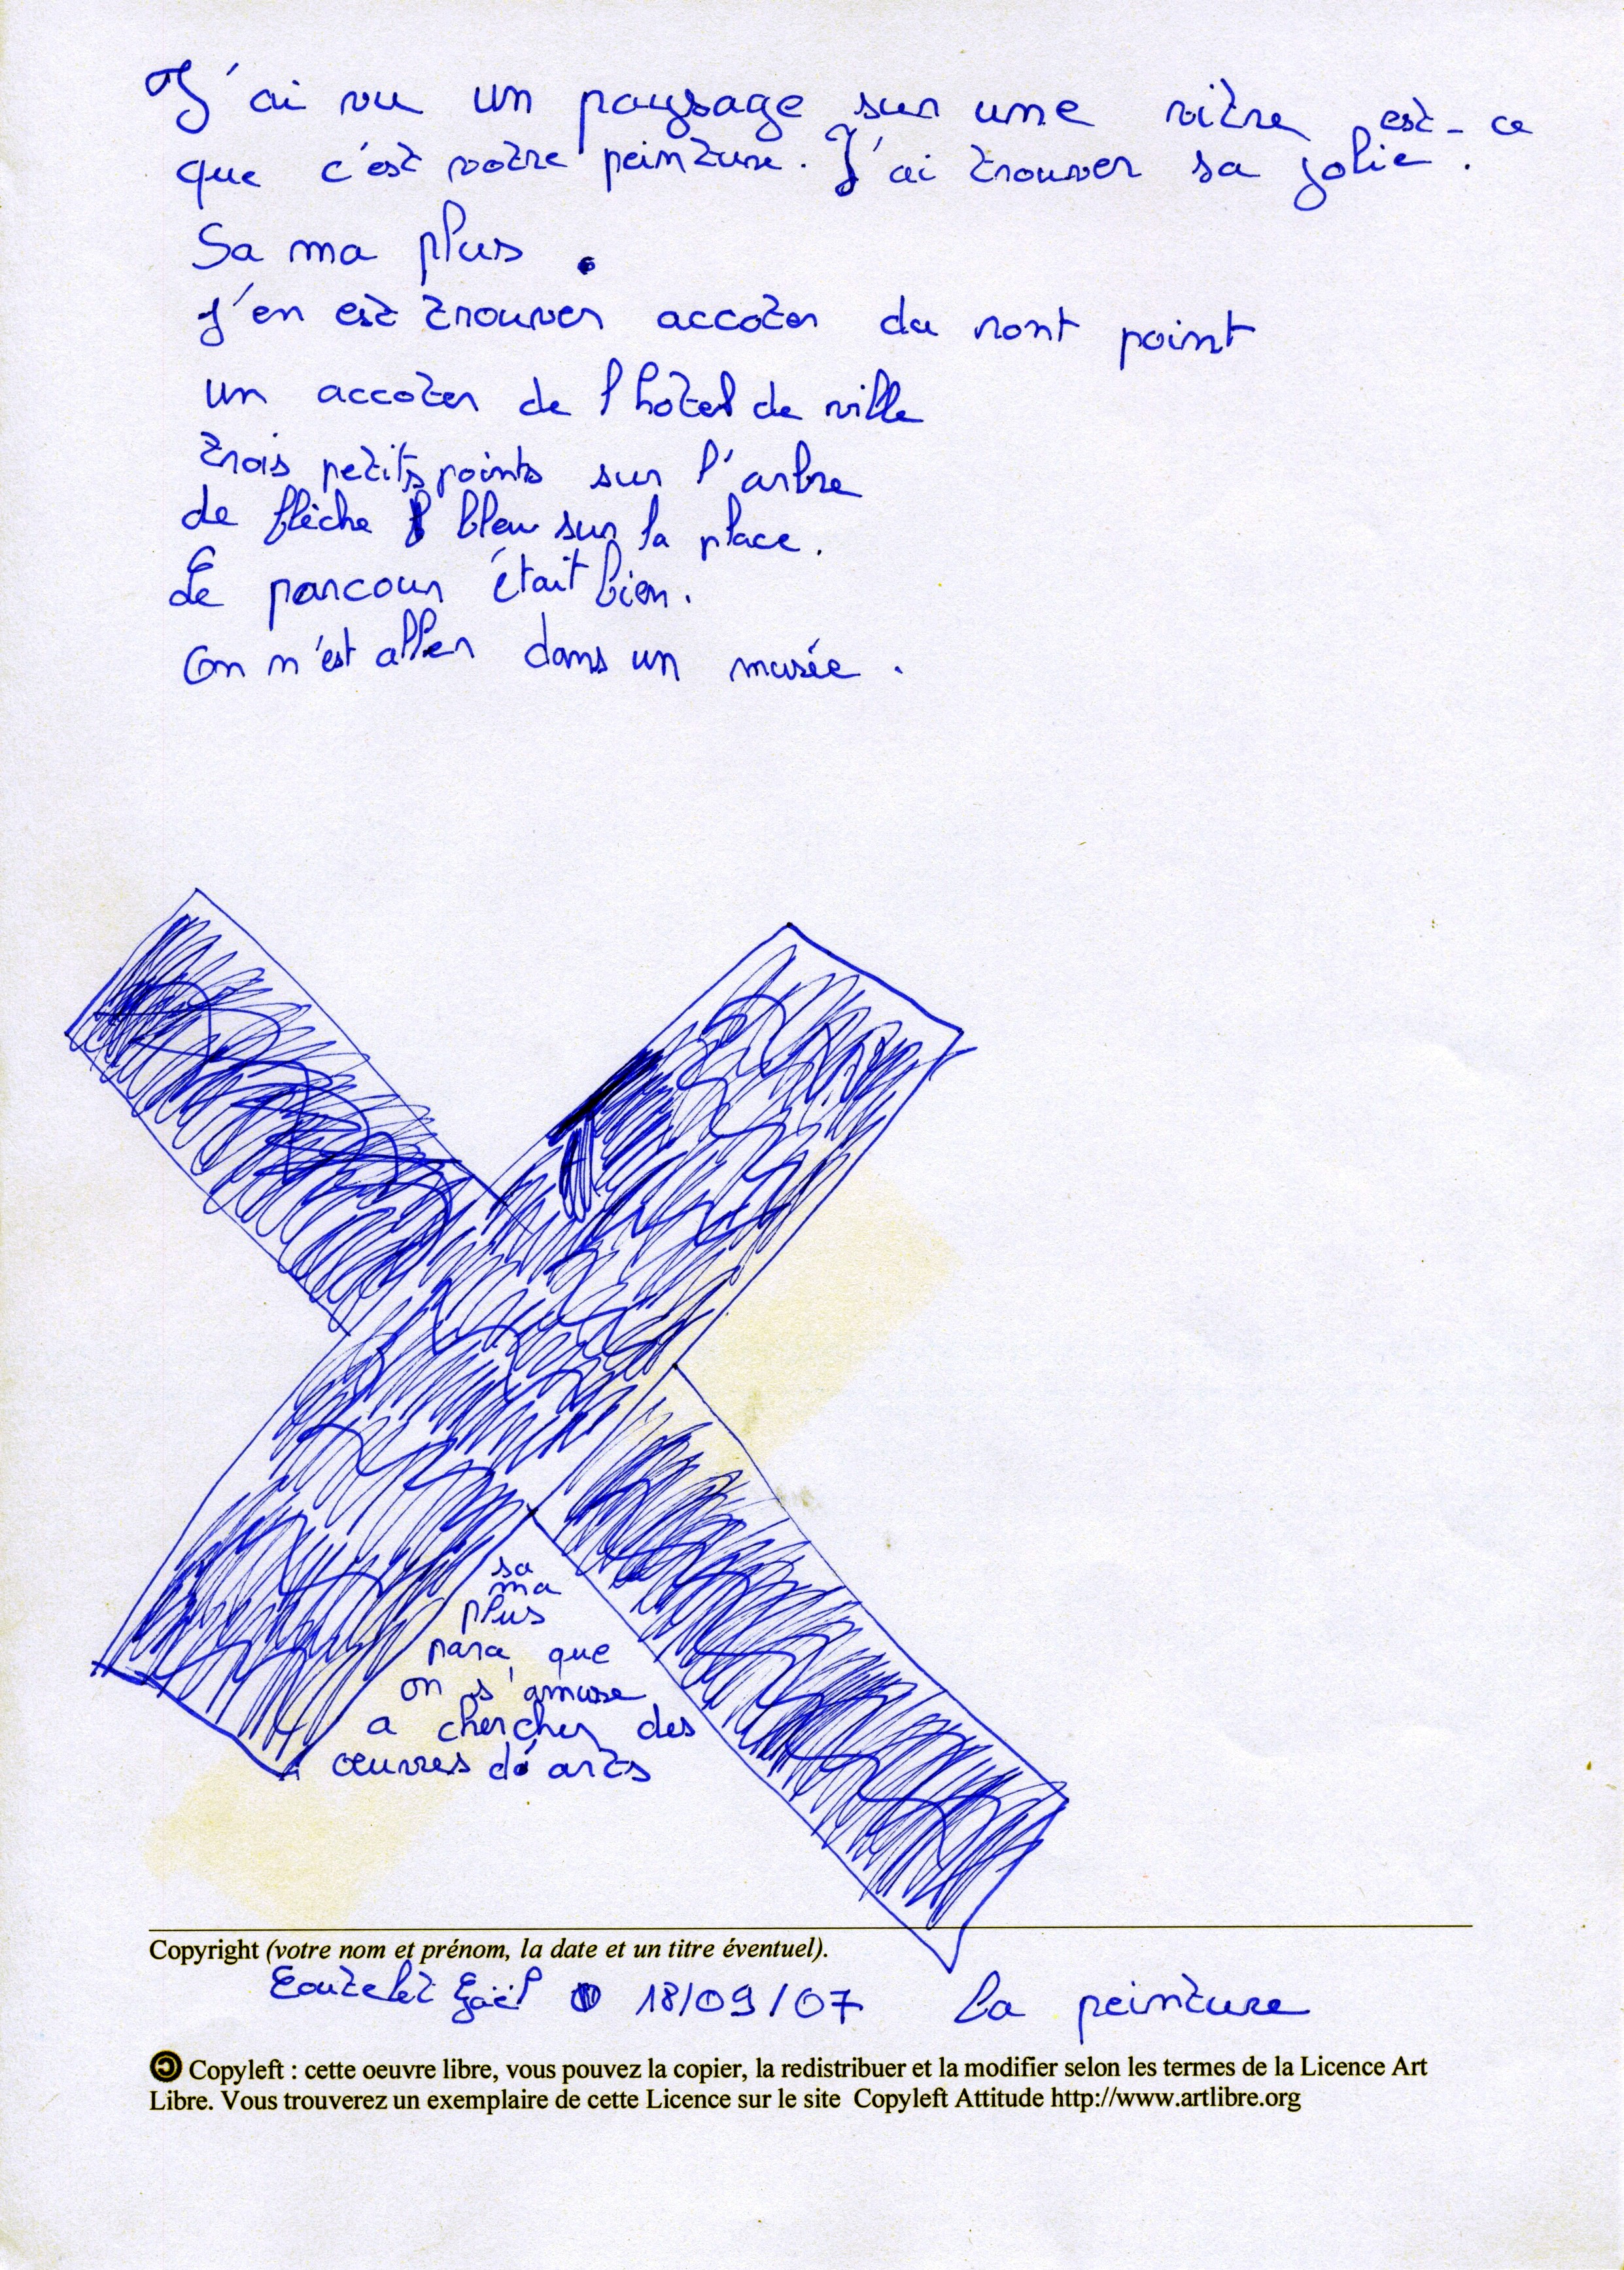 J'ai vu un paysage sur une vitre est-ce
que c'est votre peinture. J'ai trouver sa jolie.
Sa ma plus.
J'en est trouver accoter du ront point
un accoter de l hôtel de ville
trois petits points sur l'arbre
de flèche bleu sur la place.
Le parcour était bien.
on n'est aller dans un musée.
sa
ma
plus
para que
on s'amuse
a chercher des
œuvres d'arts
Copyright (votre nom et prénom, la date et un titre éventuel).
Gaël 18/09/07 la peinture
Copyleft : cette oeuvre libre, vous pouvez la copier, la redistribuer et la modifier selon les termes de la Licence Art
Libre. Vous trouverez un exemplaire de cette Licence sur le site Copyleft Attitude http://www.artlibre.org